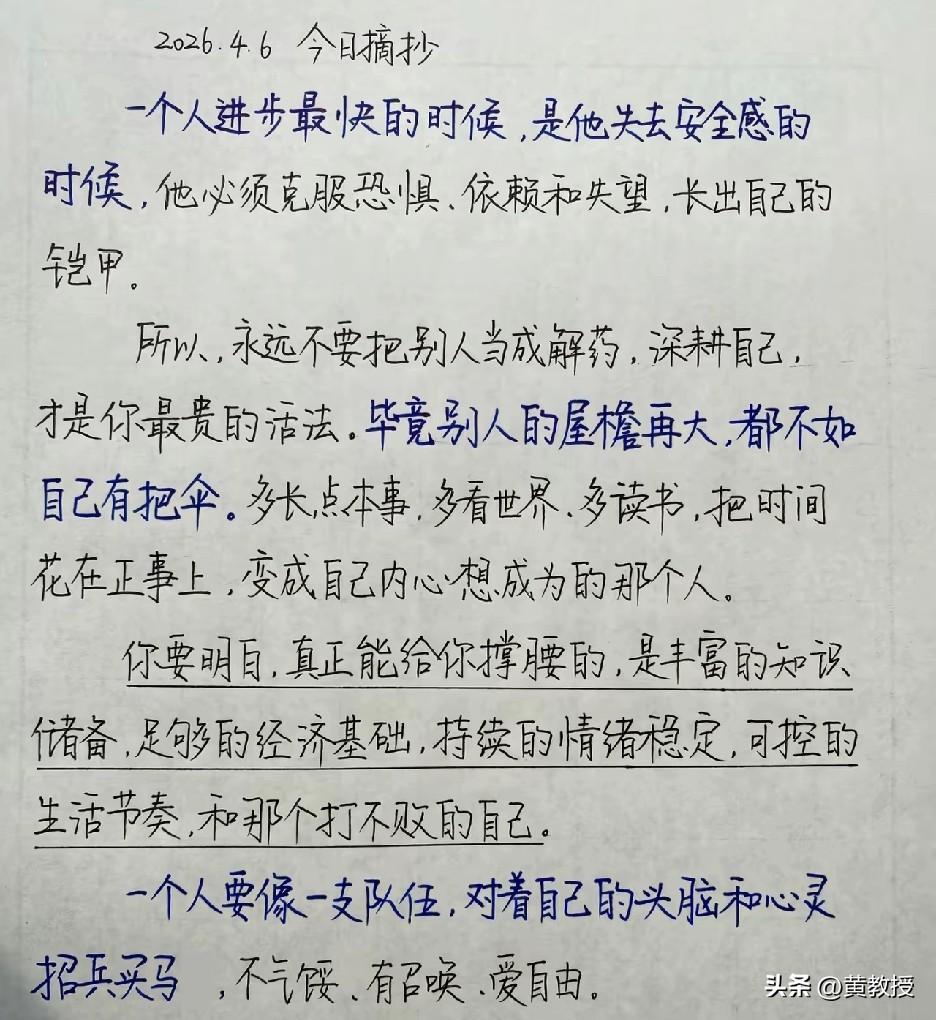 2026.4.6 今日摘抄
一个人进步最快的时候,是他失去安全感的
时候,他必须克服恐惧、依赖和失望,长出自己的
铠甲。
所以,永远不要把别人当成解药,深耕自己,
才是你最贵的活法。毕竟别人的屋檐再大,都不如
自己有把伞。多长点本事,多看世界、多读书,把时间
花在正事上,变成自己内心想成为的那个人。
你要明白,真正能给你撑腰的,是丰富的知识
储备,足够的经济基础,持续的情绪稳定,可控的
生活节奏,和那个打不败的自己。
一个人要像一支队伍,对着自己的头脑和心灵
招兵买马,不气馁、有召唤、爱自由。
头条 @黄教授